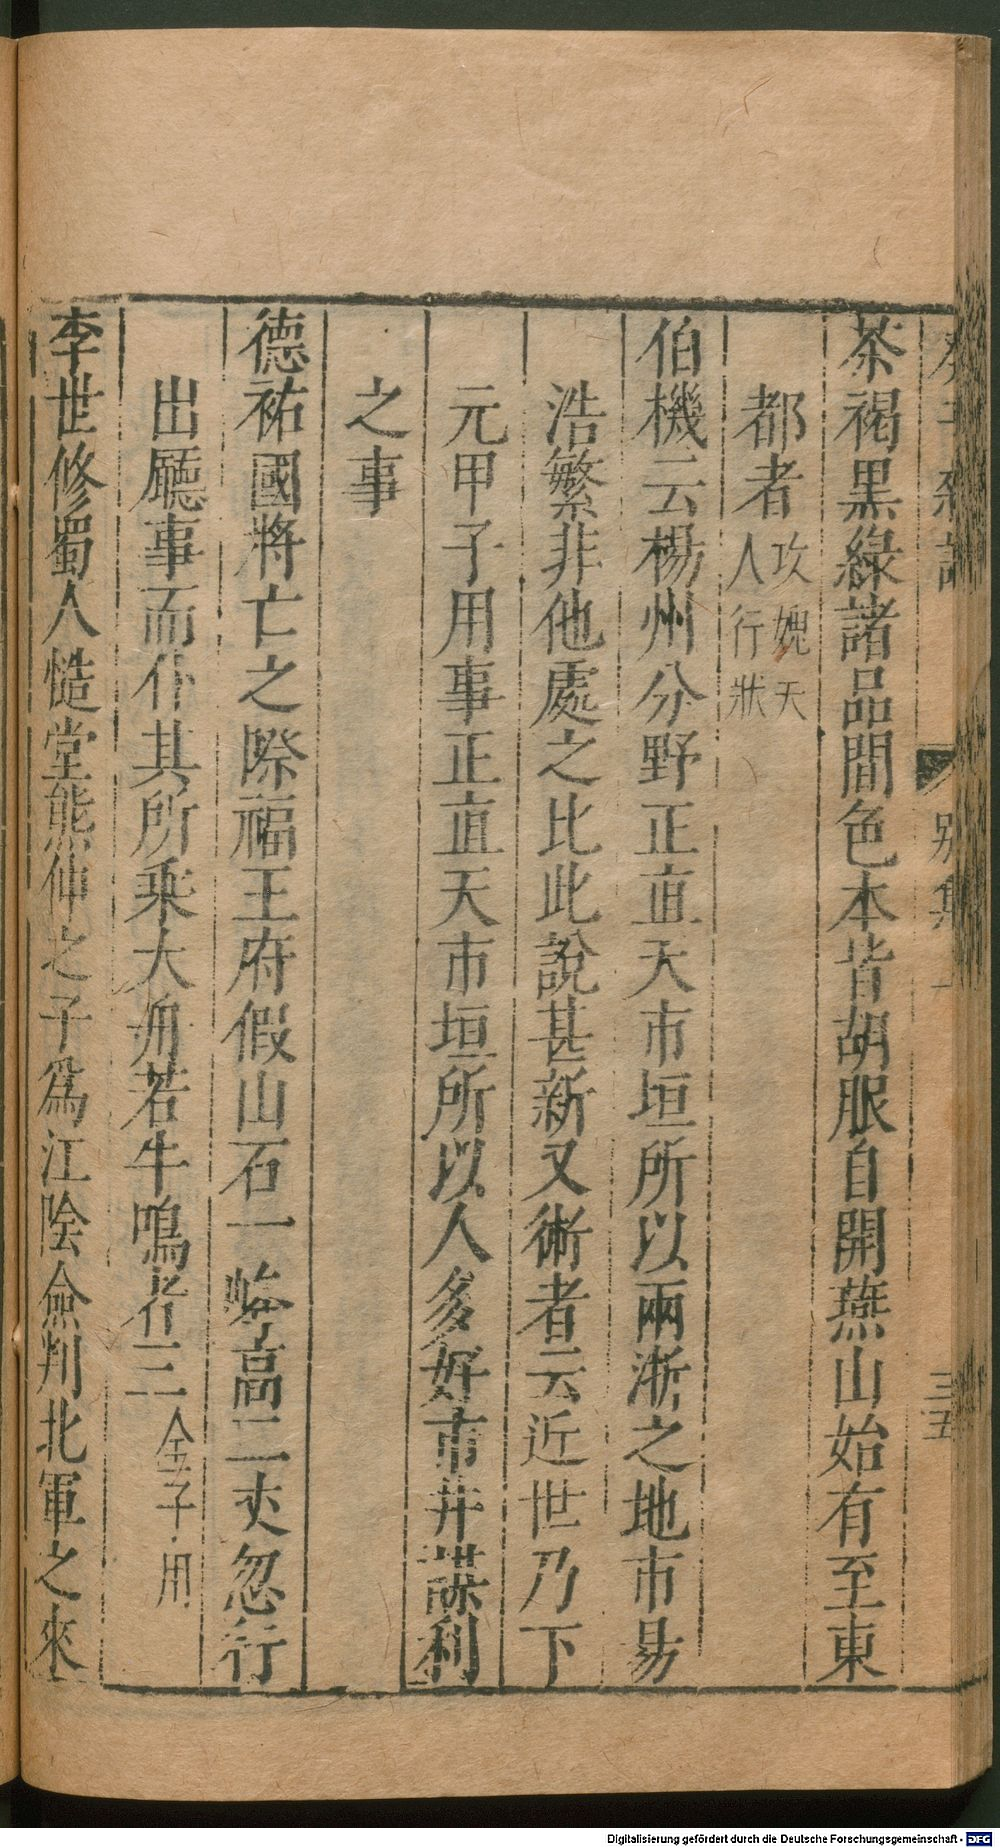 茶褐黒綠諸品間色本皆胡服自開燕山始有至東
都者攻媿天人行狀
伯機云楊州分野正直天市垣所以兩浙之地市易
浩繁非他處之比此說甚新又術者云近世乃下
元甲子用事正直天市垣所以人多好市井謀利
之事
德祐國將亡之際福王府假山石一峰高二丈忽行
出廳事而仆其所乘大舟若牛鳴者三仝子用
李世修蜀人慥堂熊仲之子爲江陰僉判北軍之來
別集
三五
Digitalisierung gefördert durch die Deutsche Forschungsgemeinschaft - DFG